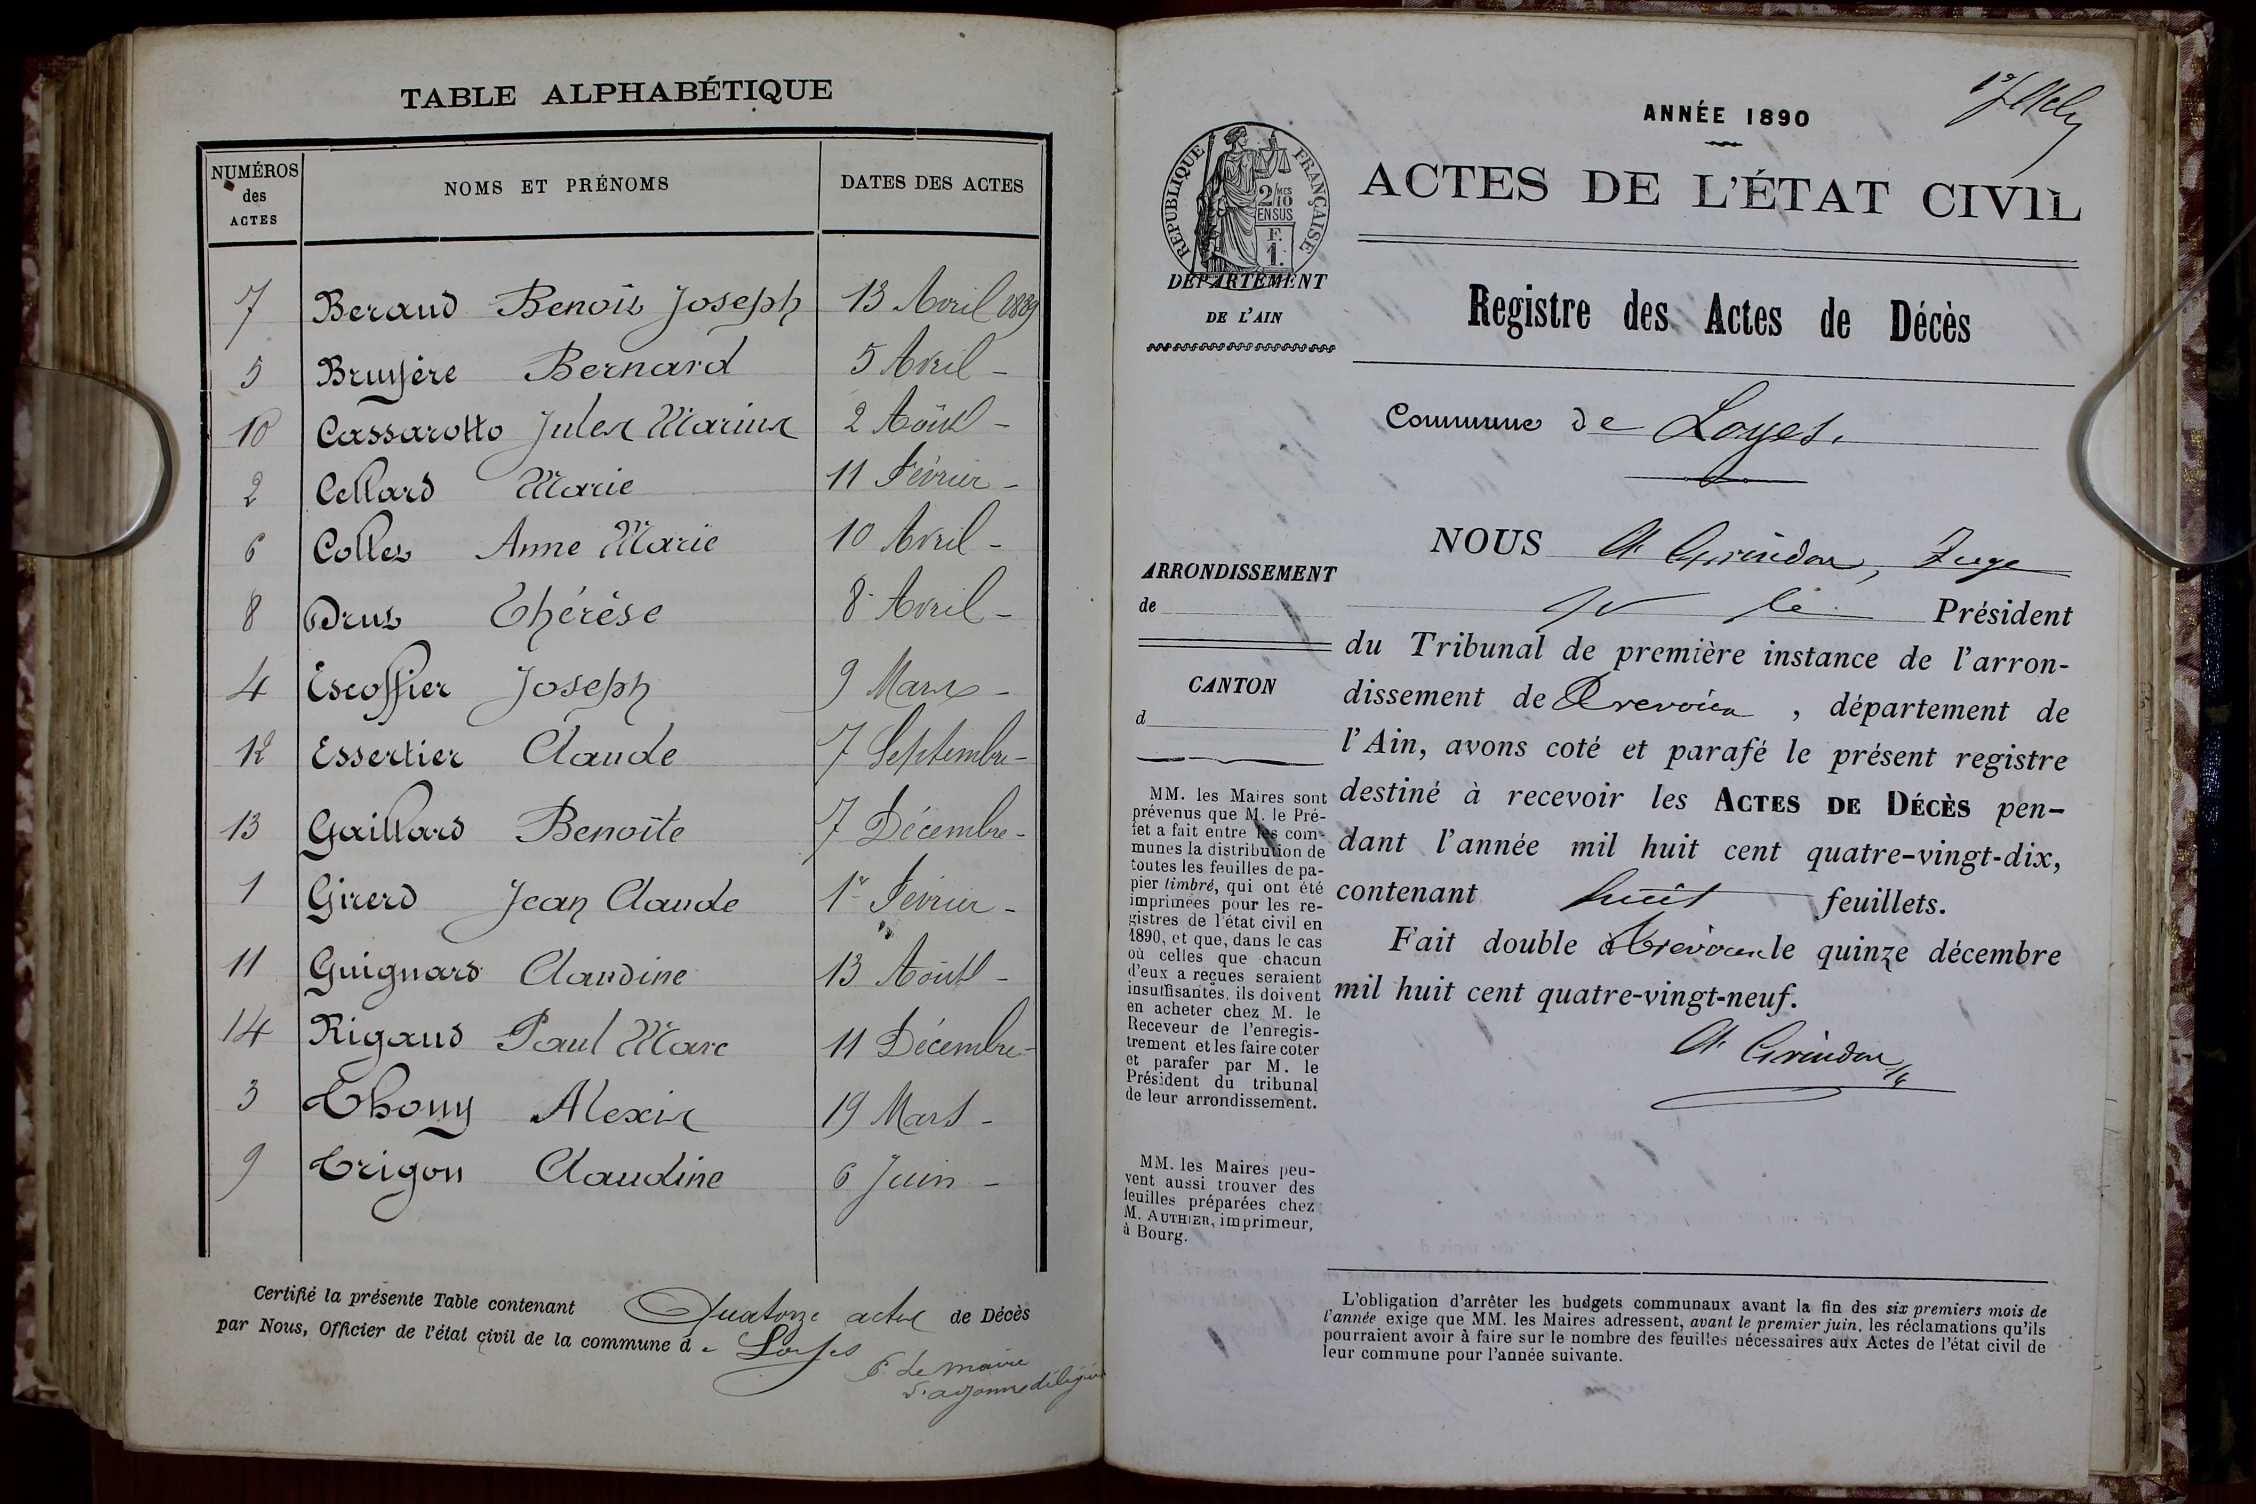 TABLE ALPHABÉTIQUE
NUMÉROS
des
ACTES
NOMS ET PRÉNOMS
DATES DES ACTES
7 Beraud Benoit Joseph 13 Avril 1889
5 Bruyère Bernard 5 Avril -
10 Cassarotto Jules Marius 2 Août -
2 Cellard Marie 11 Février -
6 Collet Anne Marie 10 Avril -
8 Drut Thérèse 8 Avril -
4 Escoffier Joseph 9 Mars -
12 Essertier Claude 7 Septembre -
13 Gaillard Benoite 7 Décembre -
1 Girerd Jean Claude 1er Février -
11 Guignard Claudine 13 Août -
14 Rigaud Paul Marc 11 Décembre -
3 Thouy Alexis 19 Mars -
9 Trigon Claudine 6 Juin -
Certifié la présente Table contenant Quatorze actes de Décès
par Nous, Officier de l'état civil de la commune de Loyes
P. le maire
ANNÉE 1890
RÉPUBLIQUE FRANÇAISE
2/10 MES
EN SUS
F.
1.
ACTES DE L'ÉTAT CIVIL
DÉPARTEMENT
DE L'AIN
Registre des Actes de Décès
Commune de Loyes.
NOUS A Grindon, Juge
Président
du Tribunal de première instance de l'arron-
dissement de Trevoux, département de
l'Ain, avons coté et parafé le présent registre
destiné à recevoir les ACTES DE DÉCÈS pen-
dant l'année mil huit cent quatre-vingt-dix,
contenant huit feuillets.
Fait double à Trevoux le quinze décembre
mil huit cent quatre-vingt-neuf.
A Grindon
ARRONDISSEMENT
de
CANTON
d
MM. les Maires sont
prévenus que M. le Pré-
fet a fait entre les com-
munes la distribution de
toutes les feuilles de pa-
pier timbré, qui ont été
imprimées pour les re-
gistres de l'état civil en
1890, et que, dans le cas
où celles que chacun
d'eux a reçues seraient
insuffisantes, ils doivent
en acheter chez M. le
Receveur de l'enregis-
trement et les faire coter
et parafer par M. le
Président du tribunal
de leur arrondissement.
MM. les Maires peu-
vent aussi trouver des
feuilles préparées chez
M. AUTHIER, imprimeur,
à Bourg.
L'obligation d'arrêter les budgets communaux avant la fin des six premiers mois de
l'année exige que MM. les Maires adressent, avant le premier juin, les réclamations qu'ils
pourraient avoir à faire sur le nombre des feuilles nécessaires aux Actes de l'état civil de
leur commune pour l'année suivante.